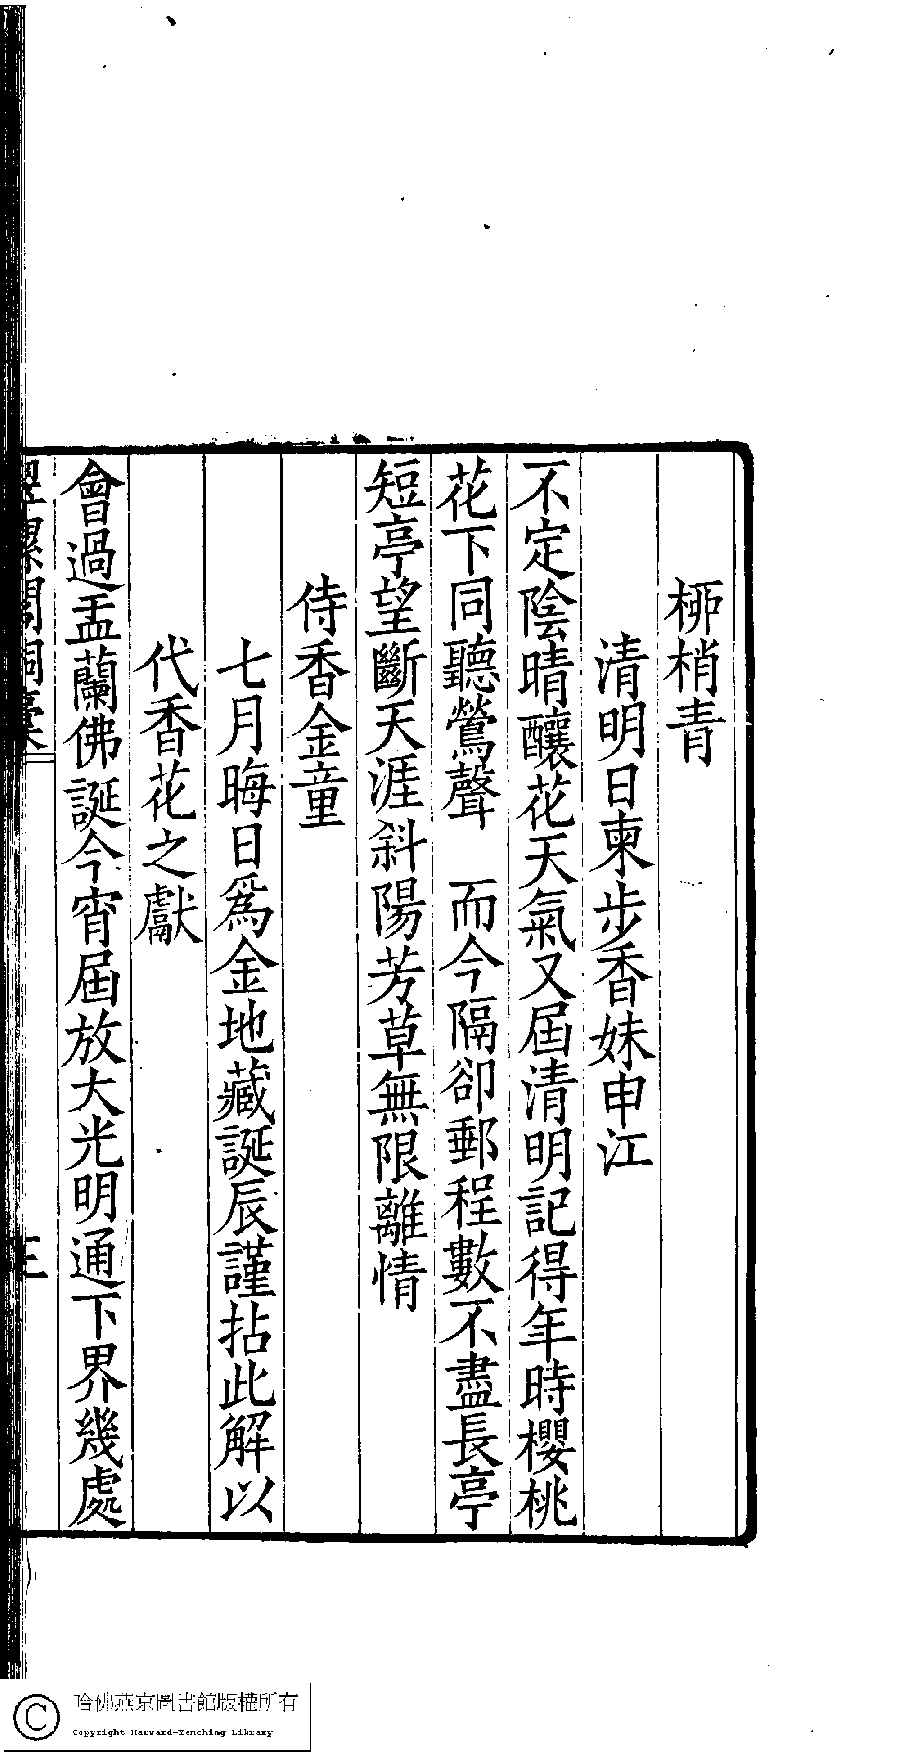 桺梢青
清明日柬步香妹申江
不定陰晴釀花天氣又屆清明記得年時櫻桃
花下同聽鶯聲　而今隔卻郵程數不盡長亭
短亭望斷天涯斜陽芳草無限離情
侍香金童
七月晦日爲金地藏誕辰謹拈此解以
代香花之獻
會過盂蘭佛誕今宵屆放大光明通下界幾處
三
哈佛燕京圖書館版權所有
Copyright Harvard-Yenching Library